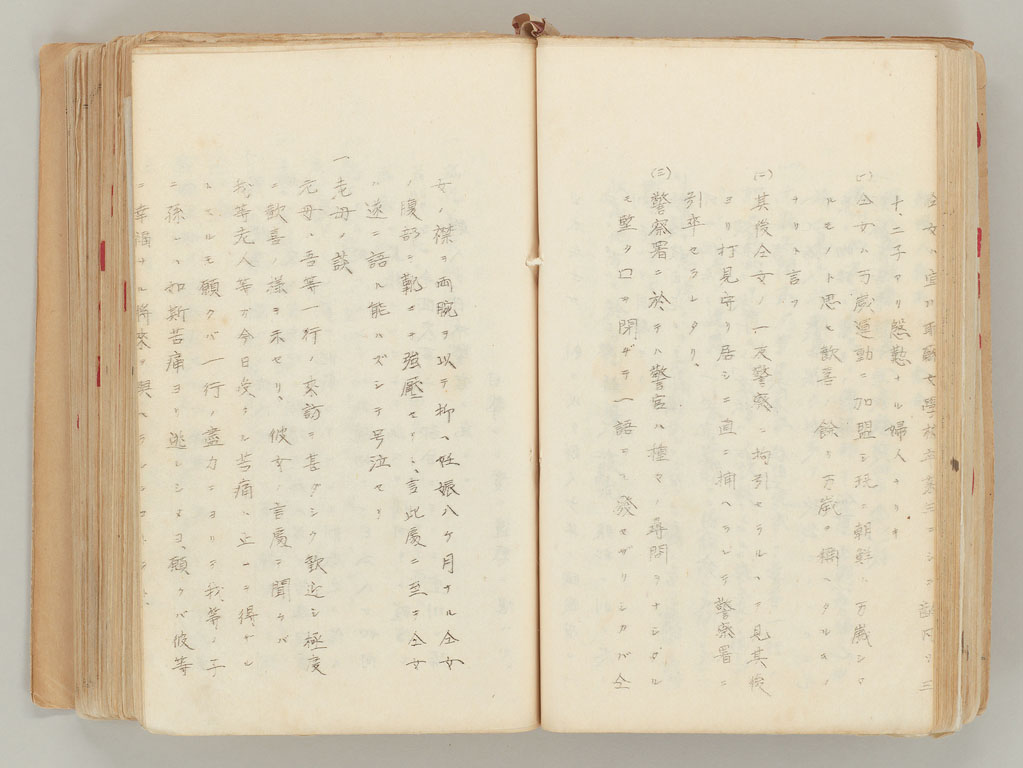 仝女ハ
十、二子アリ慇懃ナル婦人ナリキ
(一) 仝女ハ万歳運動ニ加盟シ現ニ朝鮮ハ万歳シタ
ルモノト思セ歓喜ノ餘リ万歳ヲ稱ヘタルモノ
ナリト言フ
(二) 其後仝女ノ一友警察ニ拘引セラルヽヲ見其後
ヨリ打見守リ居シニ直ニ捕ヘラレテ警察署ニ
引卒セラレタリ、
(三) 警察署ニ於テハ警官ハ種々ノ尋問ヲナシタル
モ堅ク口ヲ閉ヂテ一語ヲ発セザリシカバ仝
女ノ襟ヲ両腕ヲ以テ抑ヘ妊娠八ケ月ナル仝女
ノ腹部ニ靴ニテ強壓セリ、言此處ニ至テ仝女
ハ遂ニ語ル能ハズシテ号泣セリ
一 老母ノ談
老母ハ吾等一行ノ来訪ヲ甚ダシク歓迎シ極度
ニ歓喜ノ漾ヲ示セリ、彼女ノ言處ニ聞ラバ
我等老人等ガ今日受クル苦痛ハ止ムヲ得ザル
モ願クバ一行ノ盡力ニヨリテ我等ノ子
ニ孫ニハ如斯苦痛ヨリ逃レシメヨ、願クバ彼等
ニ幸福ナル将来ヲ與ヘ